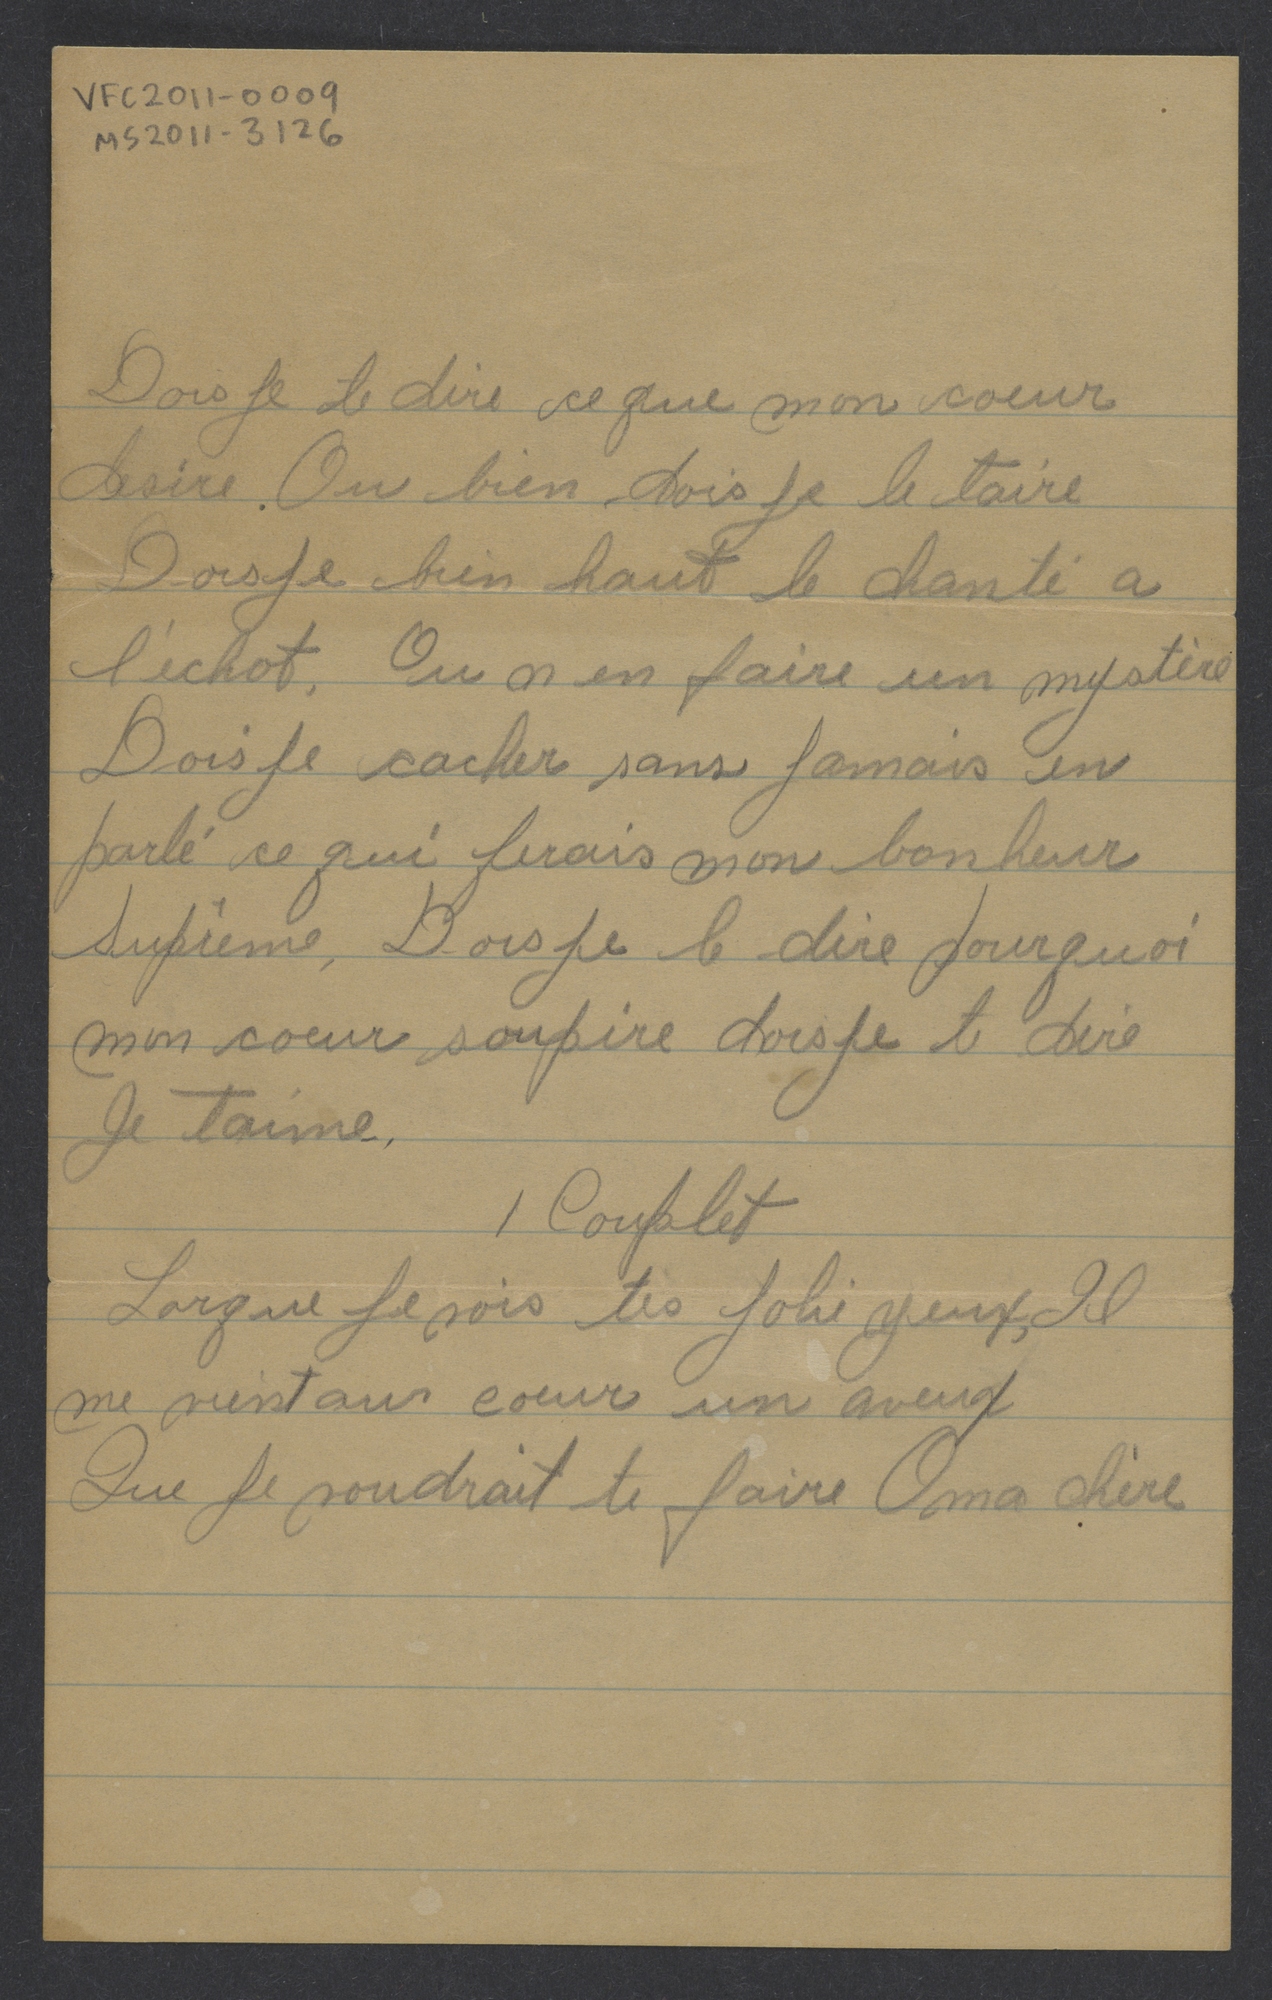 VFC2011-0009
MS2011-3126
Dois je te dire ce que mon coeur
desire. Ou bien dois je le taire
Dois je bien haut le chanté a
l'échot. Ou n en faire un mystère
Dois je cacher sans jamais en
parlé ce qui ferais mon bonheur
Suprême, Dois je le dire pourquoi
mon coeur soupire dois je te dire
Je taime.
1 Couplet
Lorque je vois tes jolie yeux, Il
me vient au coeur un aveux
Que je voudrait te faire O ma chère